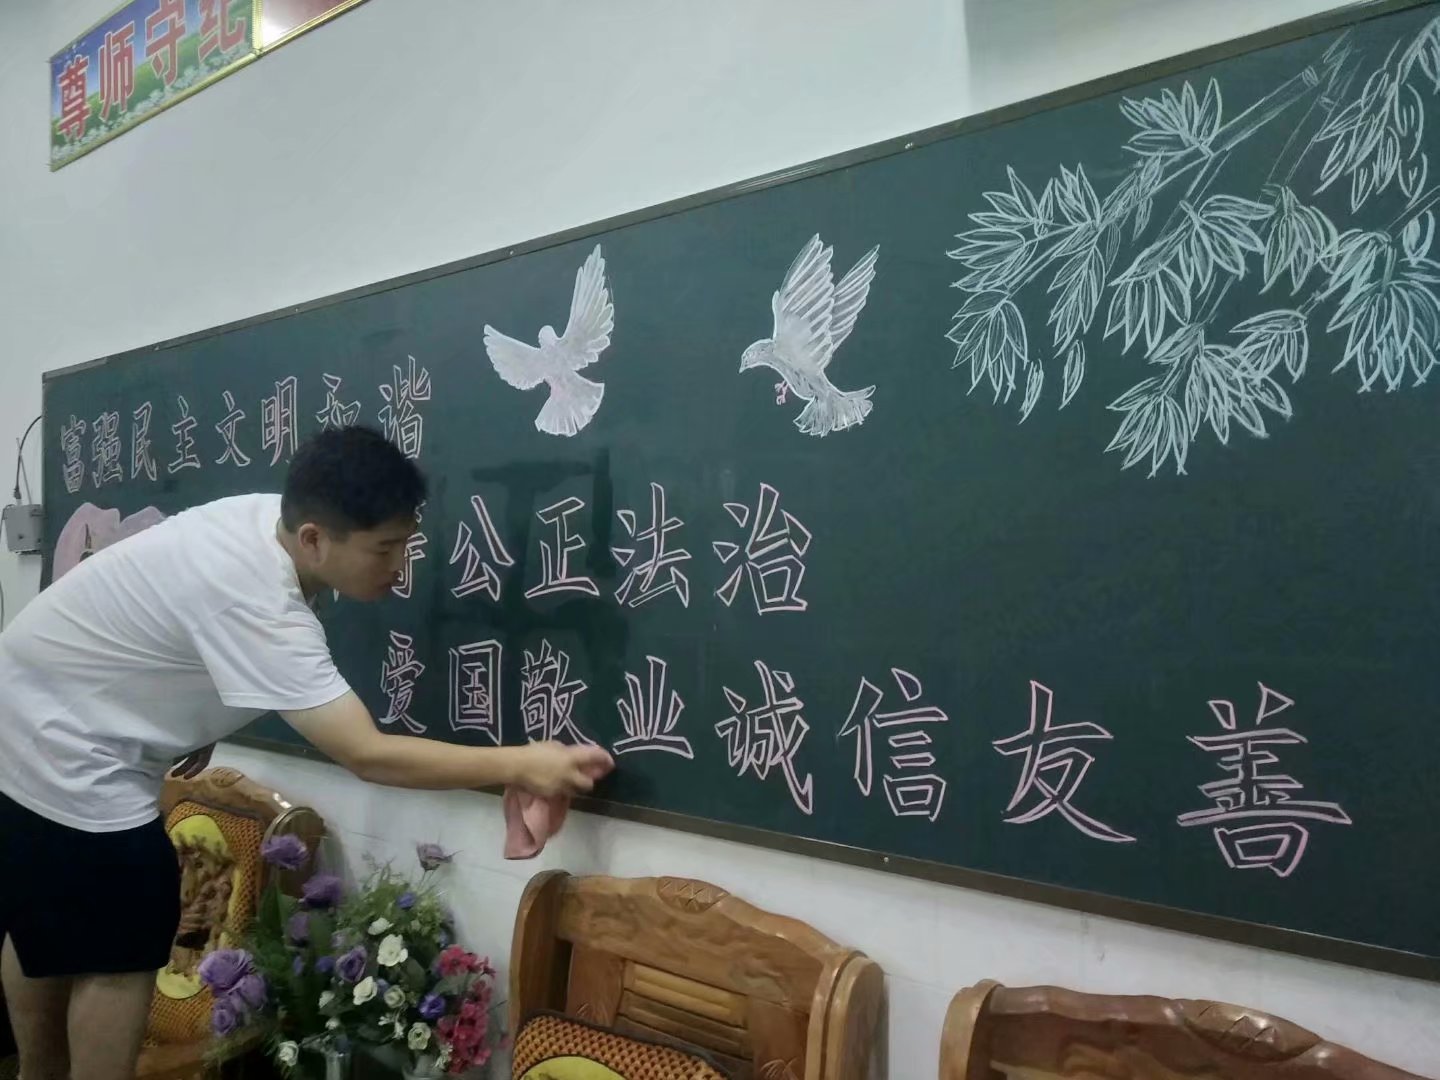 尊师守纪
富强民主文明和谐
等公正法治
爱国敬业诚信友善